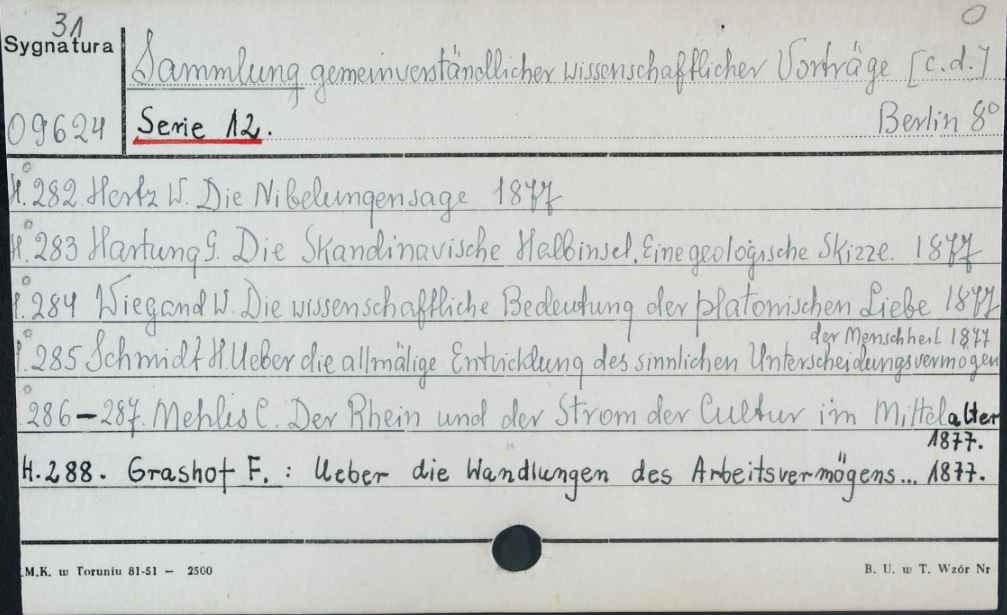 31
Sygnatura
Sammlung gemeinverständlicher wissenschaftlicher Vorträge [c.d.]
09624
Serie 12.
Berlin 8°
H. 282. Hertz W. Die Nibelungensage 1877
H. 283 Hartung G. Die Skandinavische Halbinsel. Eine geologische Skizze. 1877
H. 284 Wiegand W. Die wissenschaftliche Bedeutung der platonischen Liebe 1877
der Menschheit 1877
H. 285 Schmidt H. Ueber die allmälige Entwicklung des sinnlichen Unterscheidungsvermögen
286–287. Mehlis C. Der Rhein und der Strom der Cultur im Mittelalter
1877.
H. 288. Grashof F. : Ueber die Wandlungen des Arbeitsvermögens... 1877.
M.K. w Toruniu 81-51 — 2500
B. U. w T. Wzór Nr